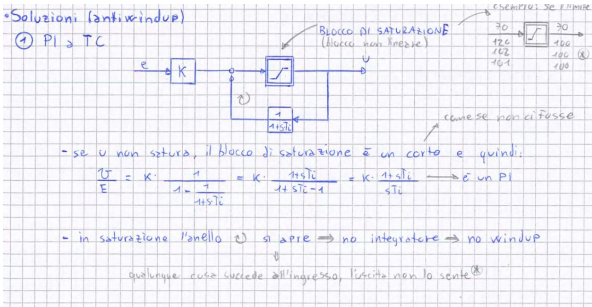 • Soluzioni (antiwindup)
esempio: se il limite
① PI a TC
BLOCCO DI SATURAZIONE
(blocco non lineare)
70 70
120 100
102 100 ⊛
101 100
e K u
1
1+sTi
come se non ci fosse
- se u non satura, il blocco di saturazione è un corto e quindi:
U/E = K · 1/(1 - 1/(1+sTi)) = K · (1+sTi)/(1+sTi-1) = K · (1+sTi)/(sTi) → è un PI
- in saturazione l'anello ↻ si apre ⇒ no integratore ⇒ no windup
qualunque cosa succede all'ingresso, l'uscita non lo sente ⊛